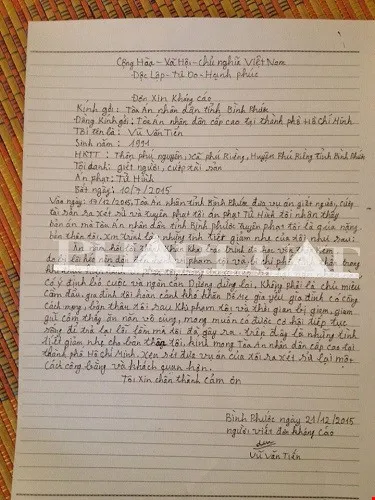 Cộng Hòa - Xã Hội - chủ nghĩa Việt Nam
Độc Lập - Tự Do - Hạnh phúc
Đơn Xin Kháng cáo
Kính gởi: Tòa Án nhân dân tỉnh Bình Phước
Đồng Kính gởi: Tòa Án nhân dân cấp cao tại thành phố Hồ Chí Minh
Tôi tên là: Vũ Văn Tiến
Sinh năm: 1991
HKTT: Thôn phú nguyên, xã phú Riềng, Huyện Phú Riềng Tỉnh Bình Phước
Tội danh: giết người, cướp tài sản
Án phạt: Tử Hình
Bắt ngày: 10/7/2015
Vào ngày 17/12/2015, Tòa Án nhân dân tỉnh Bình Phước đưa vụ án giết người, cướp
tài sản ra xét xử và tuyên phạt tôi án phạt Tử Hình tôi nhận thấy
bản án mà Tòa Án nhân dân tỉnh Bình phước tuyên phạt tôi là quá nặng
bản thân tôi xin trình bày những tình tiết giảm nhẹ của tôi như sau:
có ý định bỏ cuộc và ngăn cản Dương dừng lại, Không phải là chủ mưu
cầm đầu, gia đình tôi hoàn cảnh khó khăn Bố Mẹ già yếu, gia đình có công
Cách mạng, bản thân tôi sau khi phạm tội và thời gian bị giam, giam
giữ cảm thấy ăn năn vô cùng, mong muốn có được cơ hội tiếp tục
sống để trả lại lỗi lầm mà tôi đã gây ra. trên đây là những tình
tiết giảm nhẹ cho bản thân tôi, kính mong Tòa Án nhân dân cấp cao tại
thành phố Hồ Chí Minh. Xem xét đưa vụ án của tôi ra xét xử lại một
cách công bằng và khách quan hơn.
Tôi Xin chân thành cảm ơn
Bình Phước ngày 21/12/2015
người viết đơn kháng Cáo
Vũ Văn Tiến